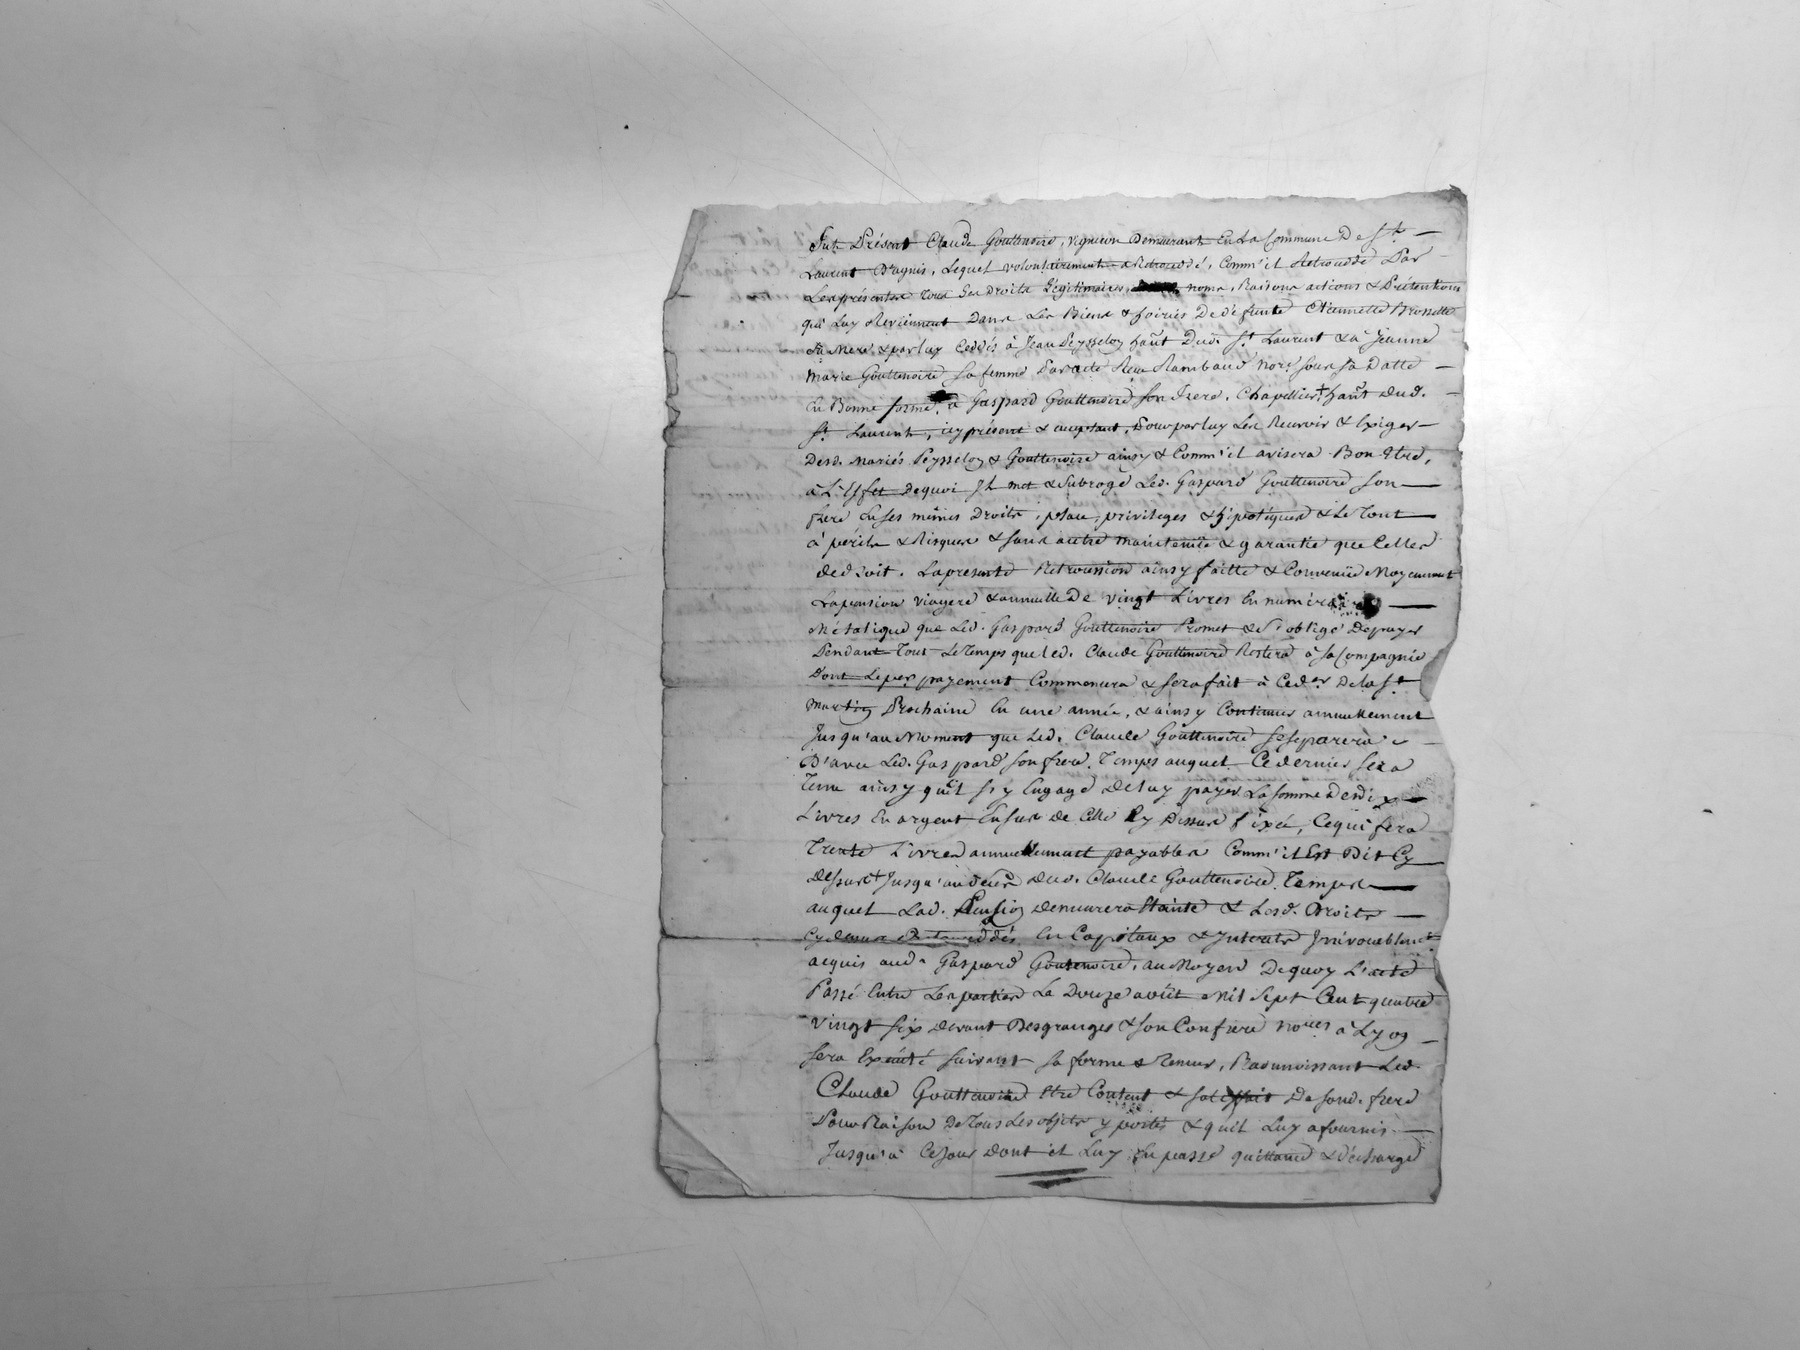 Fut Présent Claude Gouttenoire, vigneron Demeurant En La Commune De St.
Laurent D'agnis, Lequel volontairement a Retroceddé, Comm'il Retroceddé Par
Les présentes Tous Ses Droits Légitimaires, noms, Raisons actions & Prétentions
qui Luy Reviennent Dans Les Biens & hoiries De déffunte Etiennette Brossette
Sa Mere & par luy Ceddés à Jean Peysselog hañt Dud. St. Laurent & à Jeanne
Marie Gouttenoire Sa femme Par acte Reçu Rambaud Nore. sous Sa Datte
En Bonne forme, à Gaspard Gouttenoire Son Frere, Chapellier + hañt Dud.
St. Laurent, icy présent & acceptant, Pour par luy Les Recevoir & Exiger
Desd. Mariés Peysselog & Gouttenoire ainsy & Comm'il avisera Bon Etre,
à L'Effet De quoi Il met & Subroge Led. Gaspard Gouttenoire Son
frere En Ses mêmes Droits, place, privileges & hipotèques & Le Tout
à périls & Risques & Sans autre maintenüe & garantie que Celles
de droit. La presente Retrocession ainsy faitte & Convenüe Moyennant
La pension viagere & annuelle De vingt Livres En numéraire
Métalique que Led. Gaspard Gouttenoire Promet & S'oblige De payer
Pendant Tout Le Temps que led. Claude Gouttenoire Restera à Sa Compagnie
Dont Le per payement Commencera & Sera fait à Ced.er De la St.
Martin Prochaine En une année, & ainsy Continuer annuellement
Jusqu'au Moment que Led. Claude Gouttenoire Se Separera
D'avec Led. Gaspard Son frere, Temps auquel Ce dernier Sera
Tenu ainsy qu'il S'y Engage De luy payer La Somme De dix
Livres En argent En Sus de Celle Cy Dessus fixée, Ce qui fera
Trente Livres annuellement payables Comm'il Est Dit Cy
dessus + Jusqu'au décès Dud. Claude Gouttenoire, Temps
auquel Lad. Pension Demeurera Etainte & Lesd. Droits
Cy dessus Retroceddés En Capitaux & Interets Irrévocablemt
acquis aud. Gaspard Gouttenoire, au Moyen De quoy L'acte
Passé Entre Les parties Le Douze août Mil Sept Cent quatre
vingt Six devant Desgranges & Son Confrere Nores à Lyon
Sera Exécuté Suivant Sa forme & Teneur, Reconnoissant Led.
Claude Gouttenoire Etre Content & Satisfait De Sond. frere
Pour Raison De Tous Les objets y portés & qu'il Luy a fournis
Jusqu'à Ce Jour Dont il Luy En passe quittance & décharge